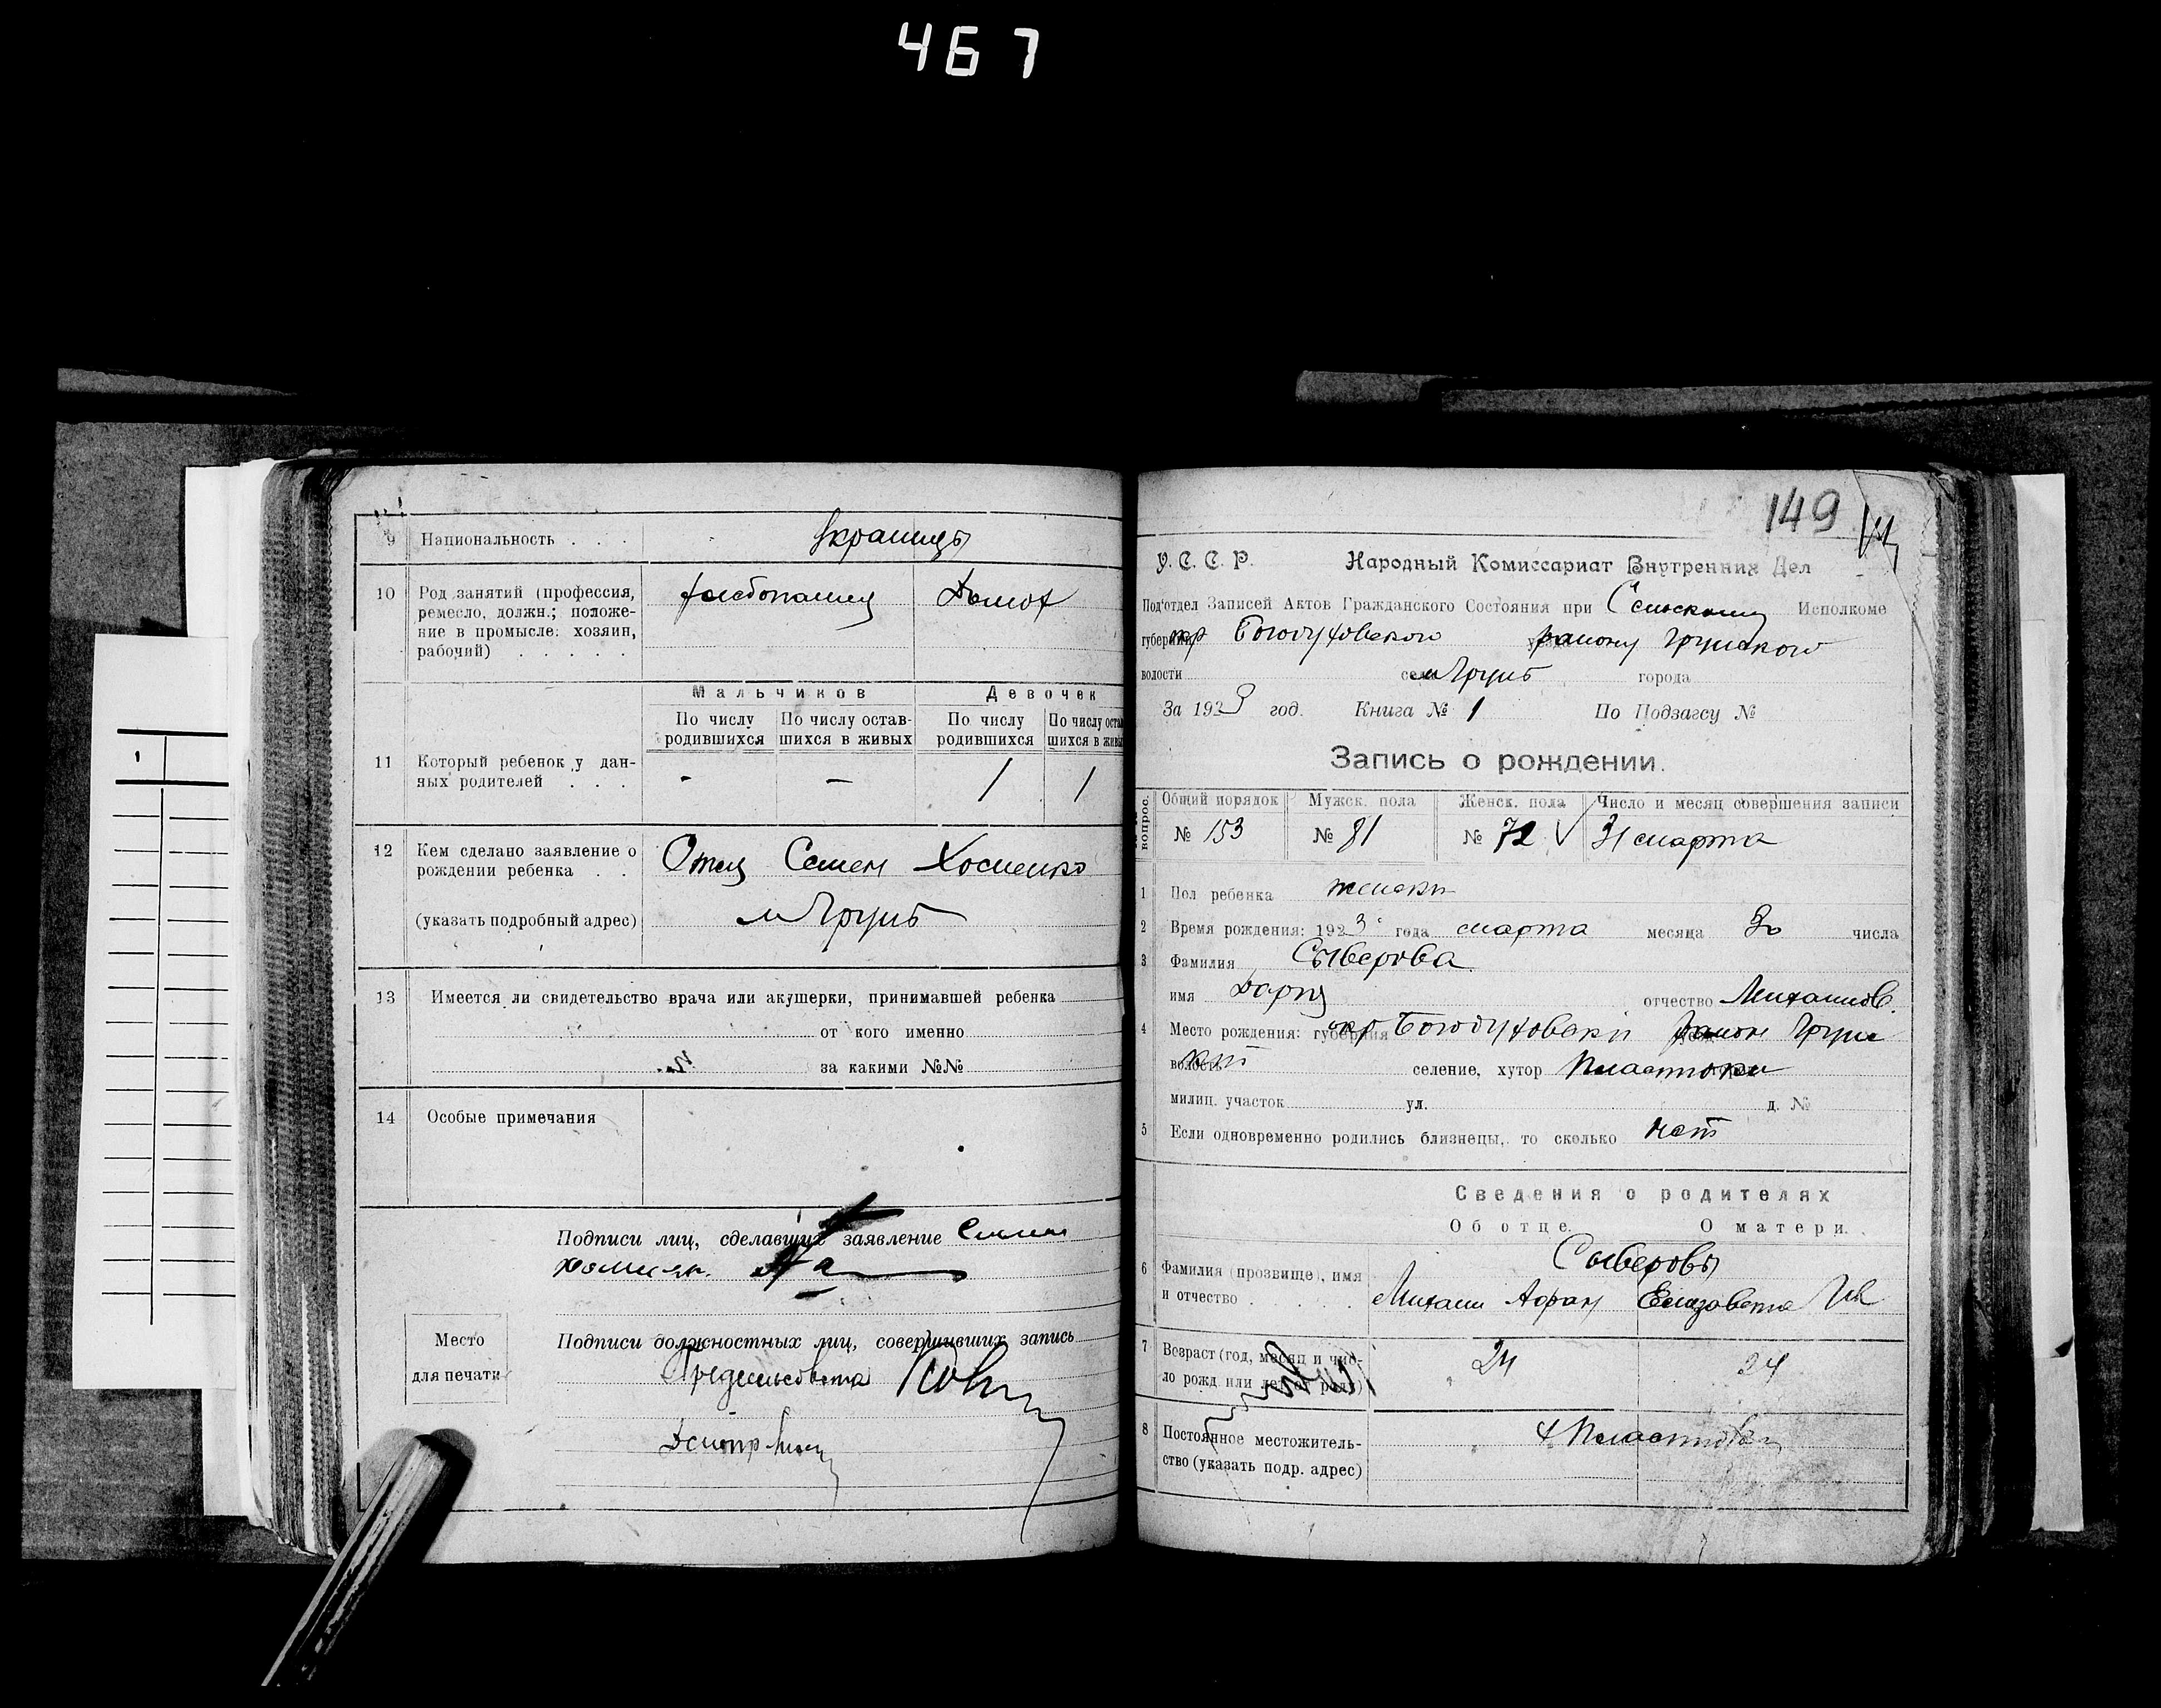 467
9 Национальность . . . Украинцы
10 Род занятий (профессия, ремесло, должн.; положе-
ние в промысле: хозяин,
рабочий) . . . . .
хлебопашец Домох
Мальчиков Девочек
По числу родившихся По числу остав-шихся в живых По числу родившихся По числу оста шихся в живы
11 Который ребенок у дан-
ных родителей . . . - - 1 1
12 Кем сделано заявление о
рождении ребенка . . Отец Семен Хоменко
(указать подробный адрес) м Грунь
13 Имеется ли свидетельство врача или акушерки, принимавшей ребенка
от кого именно
за какими №№
14 Особые примечания
Подписи лиц, сделавших заявление Семен
Место
для печати
Подписи должностных лиц, совершивших запись
Предсельсовета
149
У. С. С. Р. Народный Комиссариат Внутренних Дел
Под'отдел Записей Актов Гражданского Состояния при Сельском Исполкоме
губернии окр Богодуховского району Грунского
волости села м Грунь города
За 1923 год. Книга № 1 По Подзагсу №
Запись о рождении.
вопрос. Общий порядок Мужск. пола Женск. пола Число и месяц совершения записи
№ 153 № 81 № 72 √ 31 марта
1 Пол ребенка женски
2 Время рождения: 1923 года марта месяца 30 числа
3 Фамилия Сыверова
имя Дария отчество Михайлов.
4 Место рождения: губерния окр Богодуховски район Грунс
волость кий селение, хутор
милиц. участок ул. д. №
5 Если одновременно родились близнецы, то сколько нет
Сведения о родителях
Об отце. О матери.
Сыверовы
6 Фамилия (прозвище), имя
и отчество . . . . Михаил Афан Елизавета Ив
7 Возраст (год, месяц и чис-
ло рожд. или лет от роду) 24 24
8 Постоянное местожитель-
ство (указать подр. адрес)